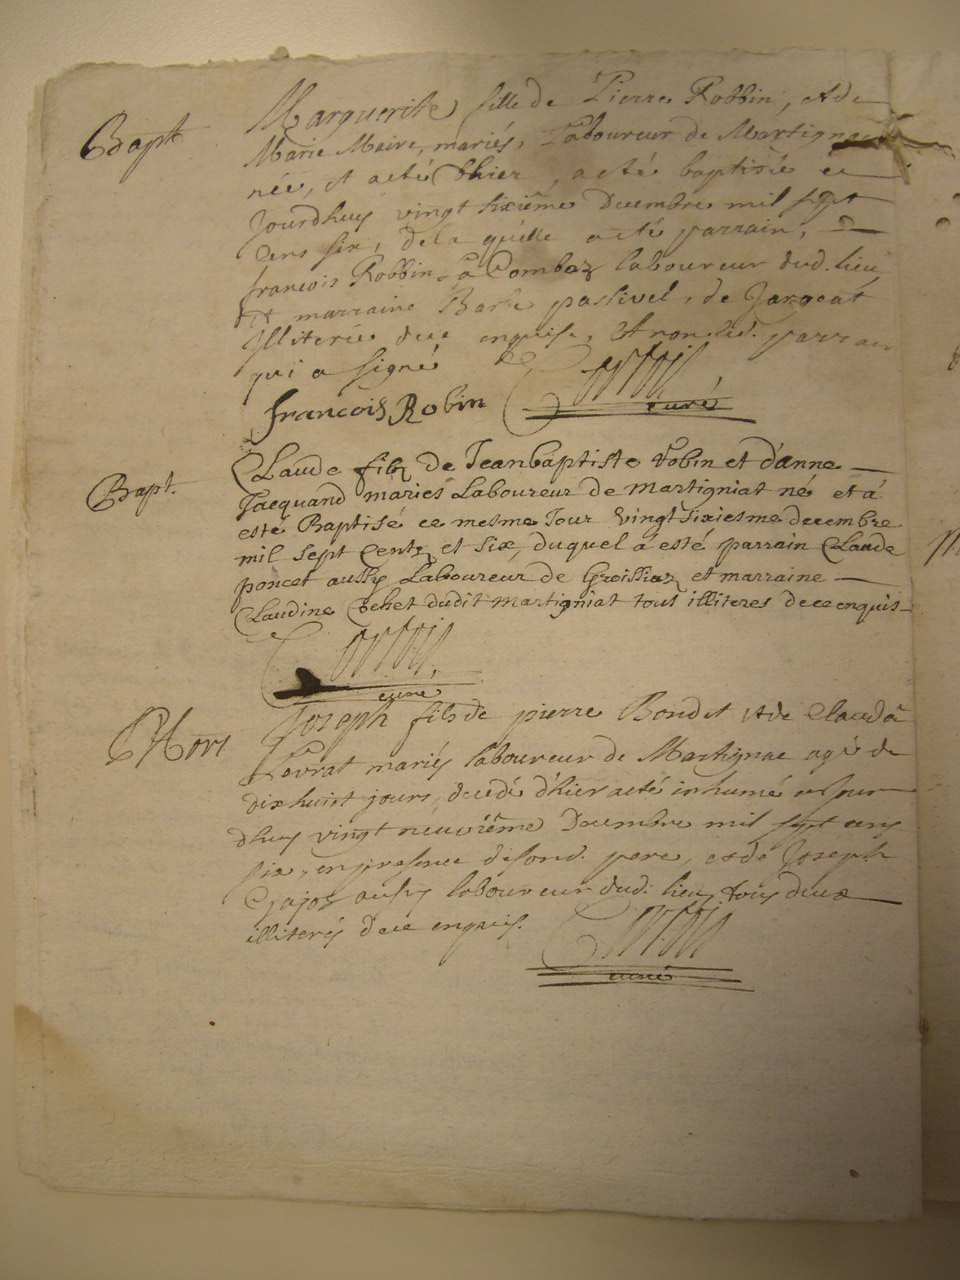 Bapt
Marguerite fille de Pierre Robbin, et de
Marie Maire, mariés, Laboureur de Martignac
née, et a eté d'hier, a eté baptisée ce
jourdhuy vingt sixiême decembre mil sept
cens six, de la quelle a eté parrain,
francois Robbin La Combaz laboureur dud. lieu
et marraine Barbe passivel, de
illiterée de ce enquise, et non led. parrain
qui a signé
francois Robin
curé
Bapt.
Claude filz de Jeanbaptiste robin et d'anne
Jacquand mariés Laboureur de martigniat né et á
esté Baptisé ce mesme Jour Vingt sixiesme decembre
mil sept Centz et six, duquel á esté parrain Claude
poncet aussy Laboureur de Groissiaz et marraine
Claudine dudit martigniat tous illiteres de ce enquis
curé
Mort
Joseph fils de pierre Bondet et de Clauda
Levrat mariés laboureur de Martignac agé de
dix huict jours, decedé d'hier a eté inhumé ce jour
dhuy vingt neuviême Decembre mil sept cens
six, en presence de sond. pere, et de Joseph
aussy laboureur dud. lieu, tous deux
illiterés de ce enquis.
curé